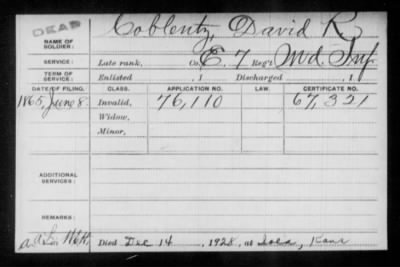 DEAD
NAME OF SOLDIER: Coblentz, David R.
SERVICE: Late rank, Co. E. 7 Reg't Md. Inf.
TERM OF SERVICE: Enlisted , 1 Discharged , 1
DATE OF FILING. CLASS. APPLICATION NO. LAW. CERTIFICATE NO.
1865, June 8. Invalid, 76,110 67,321
Widow,
Minor,
ADDITIONAL SERVICES:
REMARKS:
Died Dec 14, 1928, at Iola, Kans